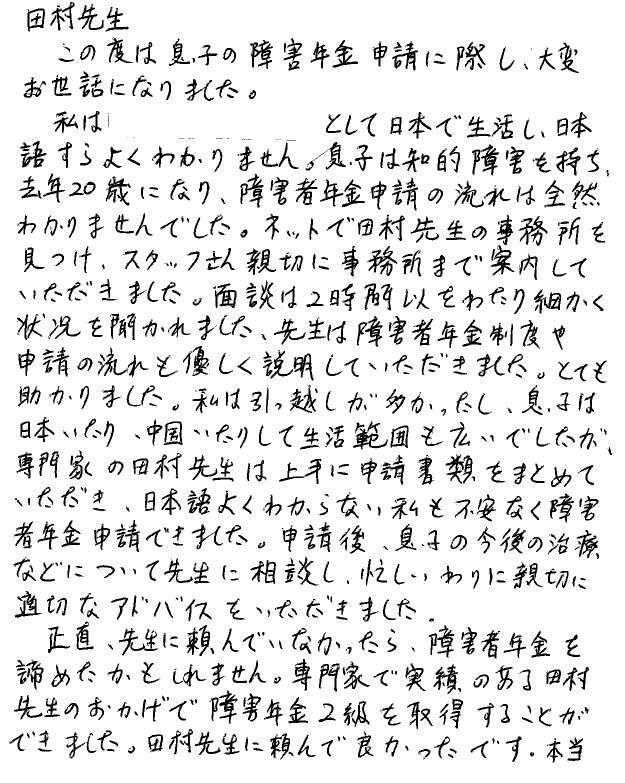 田村先生
この度は息子の障害年金申請に際し、大変
お世話になりました。
私は として日本で生活し、日本
語すらよくわかりません。息子は知的障害を持ち、
去年20歳になり、障害者年金申請の流れは全然
わかりませんでした。ネットで田村先生の事務所を
見つけ、スタッフさん親切に事務所まで案内して
いただきました。面談は2時間以をわたり細かく
状況を聞かれました、先生は障害者年金制度や
申請の流れも優しく説明していただきました。とても
助かりました。私は引っ越しが多かったし、息子は
日本いたり、中国いたりして生活範囲も広いでしたが、
専門家の田村先生は上手に申請書類をまとめて
いただき、日本語よくわからない私も不安なく障害
者年金申請できました。申請後、息子の今後の治療
などについて先生に相談し、忙しいわりに親切に
適切なアドバイスをいただきました。
正直、先生に頼んでいなかったら、障害者年金を
諦めたかもしれません。専門家で実績のある田村
先生のおかげで障害年金2級を取得することが
できました。田村先生に頼んで良かったです。本当